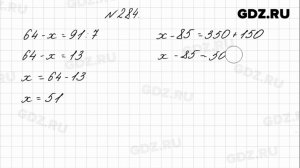 №284
GDZ.RU
64 - x = 91 · 7
64 - x = 13
x = 64 - 13
x = 51
x - 85 = 350 + 150
x - 85 - 50